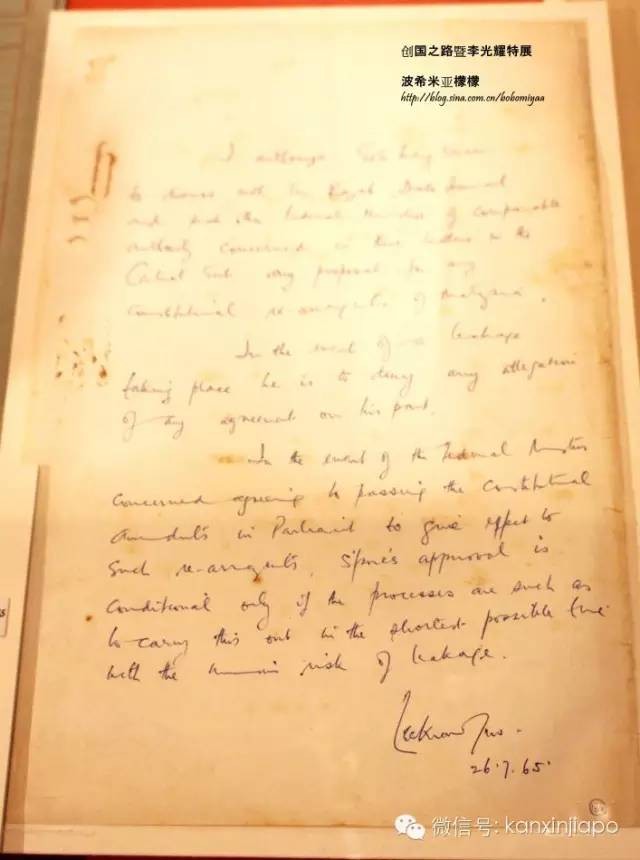 创国之路暨李光耀特展
波希米亚檬檬
http://blog.sina.com.cn/bobomiyaa
I authorise Goh Keng Swee
to discuss with Tun Razak, Dato Ismail
and such other Federal Ministers of comparable
authority concerned in these matters in the
Central Govt any proposal for any
constitutional re-arrangements of Malaysia.
In the event of a leakage
taking place he is to deny any allegation
of any agreement on his part.
In the event of the Federal Ministers
concerned agreeing to passing the Constitutional
Amendments in Parliament to give effect to
such re-arrangements, S'pore's approval is
conditional only if the processes are such as
to carry this out in the shortest possible time
with the minimum risk of leakage.
Lee Kuan Yew.
26.7.65.
微信号: kanxinjiapo